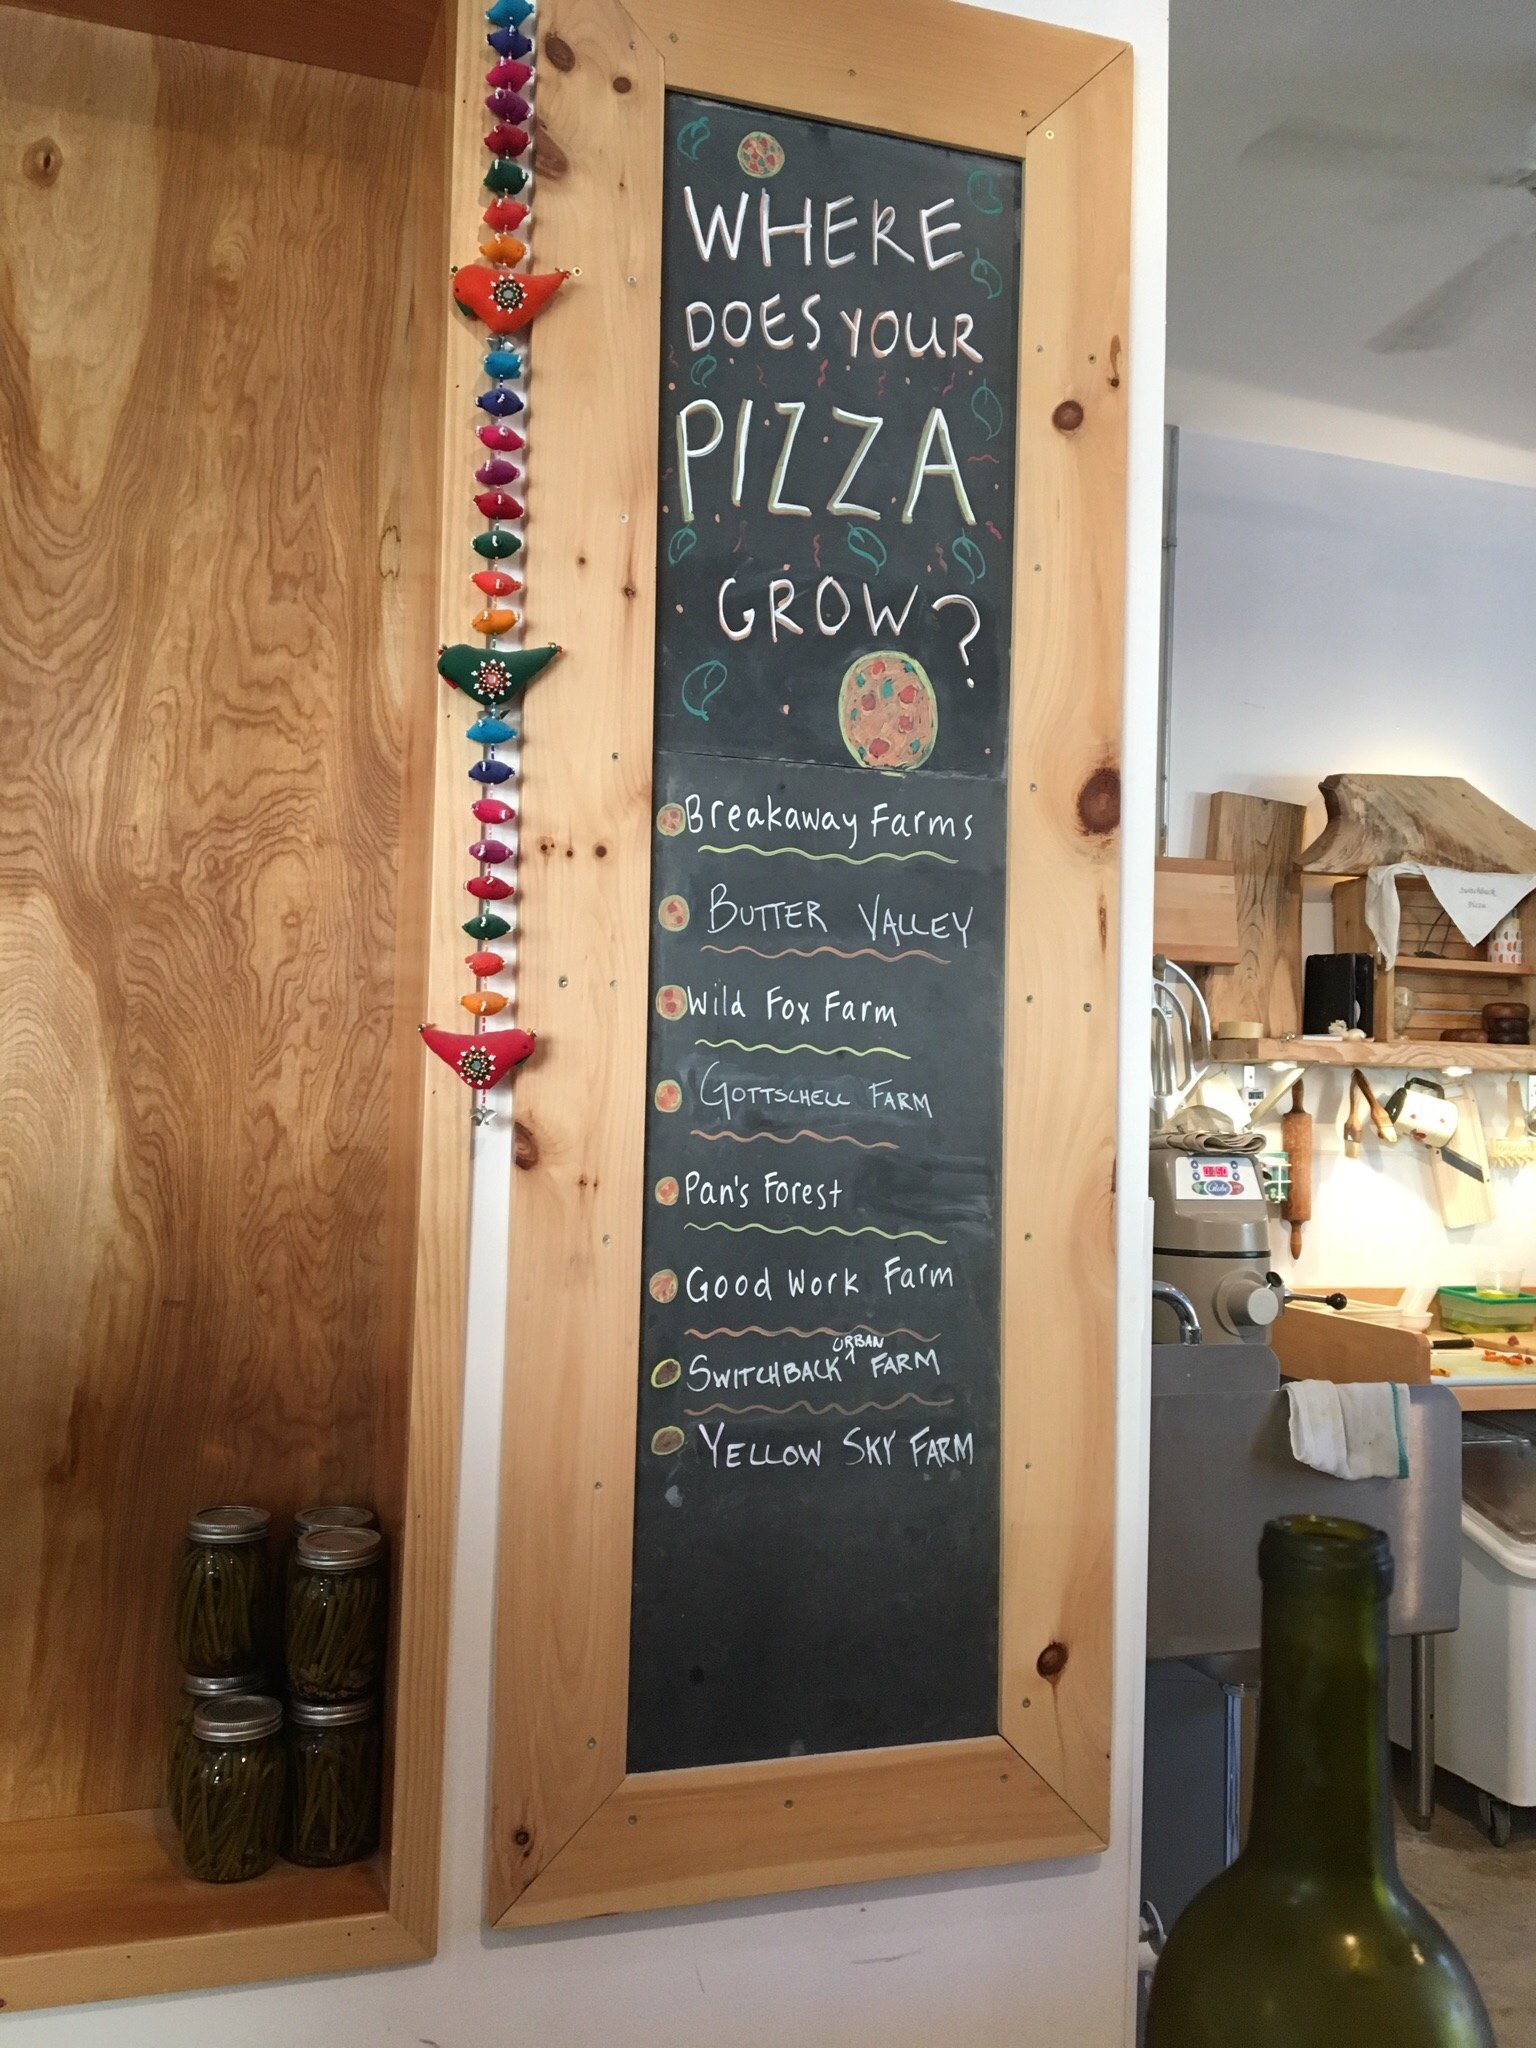 WHERE
DOES YOUR
PIZZA
GROW?
Breakaway Farms
BUTTER VALLEY
Wild Fox Farm
GOTTSCHELL FARM
Pan's Forest
Good Work Farm
SWITCHBACK URBAN FARM
YELLOW SKY FARM
Switchback
Pizza
Globe